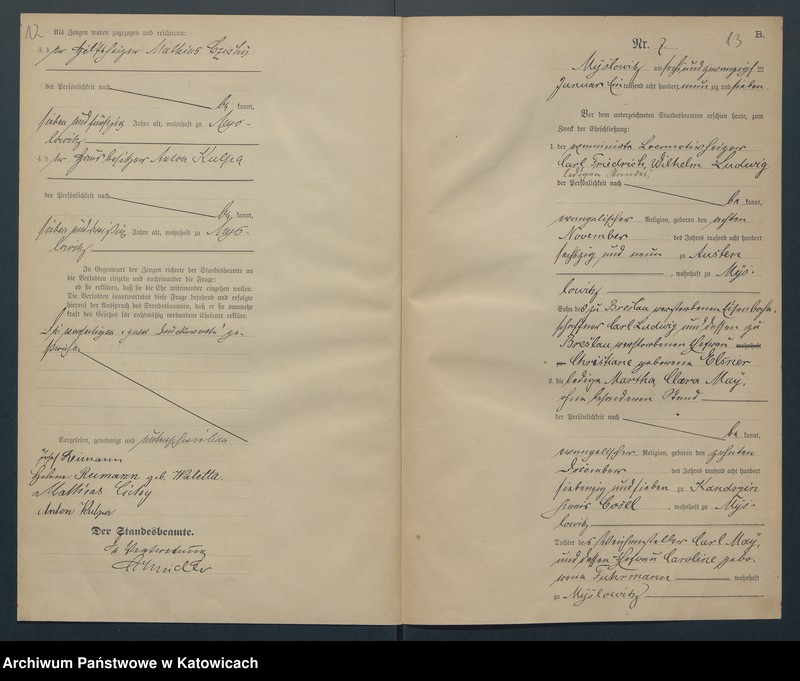 12
Als Zeugen waren zugezogen und erschienen:
3. der Hilfsheizer Mathias Czichy
der Persönlichkeit nach
be kannt,
sieben und fünfzig Jahre alt, wohnhaft zu Mys-
lowitz
4. der Hausbesitzer Anton Kulpa
der Persönlichkeit nach
be kannt,
sieben und dreißig Jahre alt, wohnhaft zu Mys-
lowitz
In Gegenwart der Zeugen richtete der Standesbeamte an
die Verlobten einzeln und nacheinander die Frage:
ob sie erklären, daß sie die Ehe miteinander eingehen wollen.
Die Verlobten beantworteten diese Frage bejahend und erfolgte
hierauf der Ausspruch des Standesbeamten, daß er sie nunmehr
kraft des Gesetzes für rechtmäßig verbundene Eheleute erkläre.
Die zwei Druckworte ge-
strichen
Vorgelesen, genehmigt und unterschrieben
Josef Reimann
Helene Reimann geb. Waletta
Mathias Cichy
Anton Kulpa
Der Standesbeamte.
In Vertretung
13
B.
Nr. 7
Myslowitz am sechsundzwanzigsten
Januar Ein tausend acht hundert neun zig und sieben
Vor dem unterzeichneten Standesbeamten erschien heute, zum
Zweck der Eheschließung:
1. der examinirte Locomotivheizer
Carl Friedrich, Wilhelm Ludwig
ledigen Standes,
der Persönlichkeit nach
be kannt,
evangelischer Religion, geboren den achten
November des Jahres tausend acht hundert
sechszig und neun zu Austen
, wohnhaft zu Mys-
lowitz
Sohn des zu Breslau verstorbenen Eisenbahn-
schaffner Carl Ludwig und dessen zu
Breslau verstorbenen Ehefrau wohnhaft
zu Christiane geborene Elsner
2. die ledige Martha Clara May,
ohne besonderen Stand
der Persönlichkeit nach
be kannt,
evangelischer Religion, geboren den zehnten
December des Jahres tausend acht hundert
siebenzig und sieben zu Kandrzin
Kreis Cosel, wohnhaft zu Mys-
lowitz
Tochter des Weichensteller Carl May,
und dessen Ehefrau Caroline gebo-
rene Fuhrmann wohnhaft
zu Myslowitz
Archiwum Państwowe w Katowicach